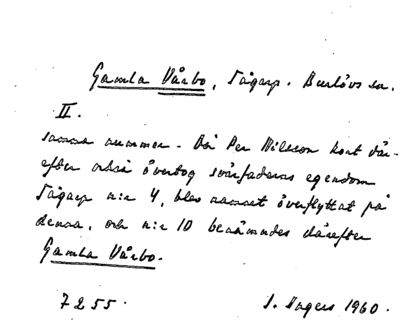 Gamla Vårbo, Tågarp. Burlövs sn.
II.
samma nummer. Då Per Nilsson kort där-
efter också övertog svärfaderns egendom
Tågarp n:r 4, blev namnet överflyttat på
denna, och n:r 10 benämndes därefter
Gamla Vårbo.
7255. I. Ingers 1960.